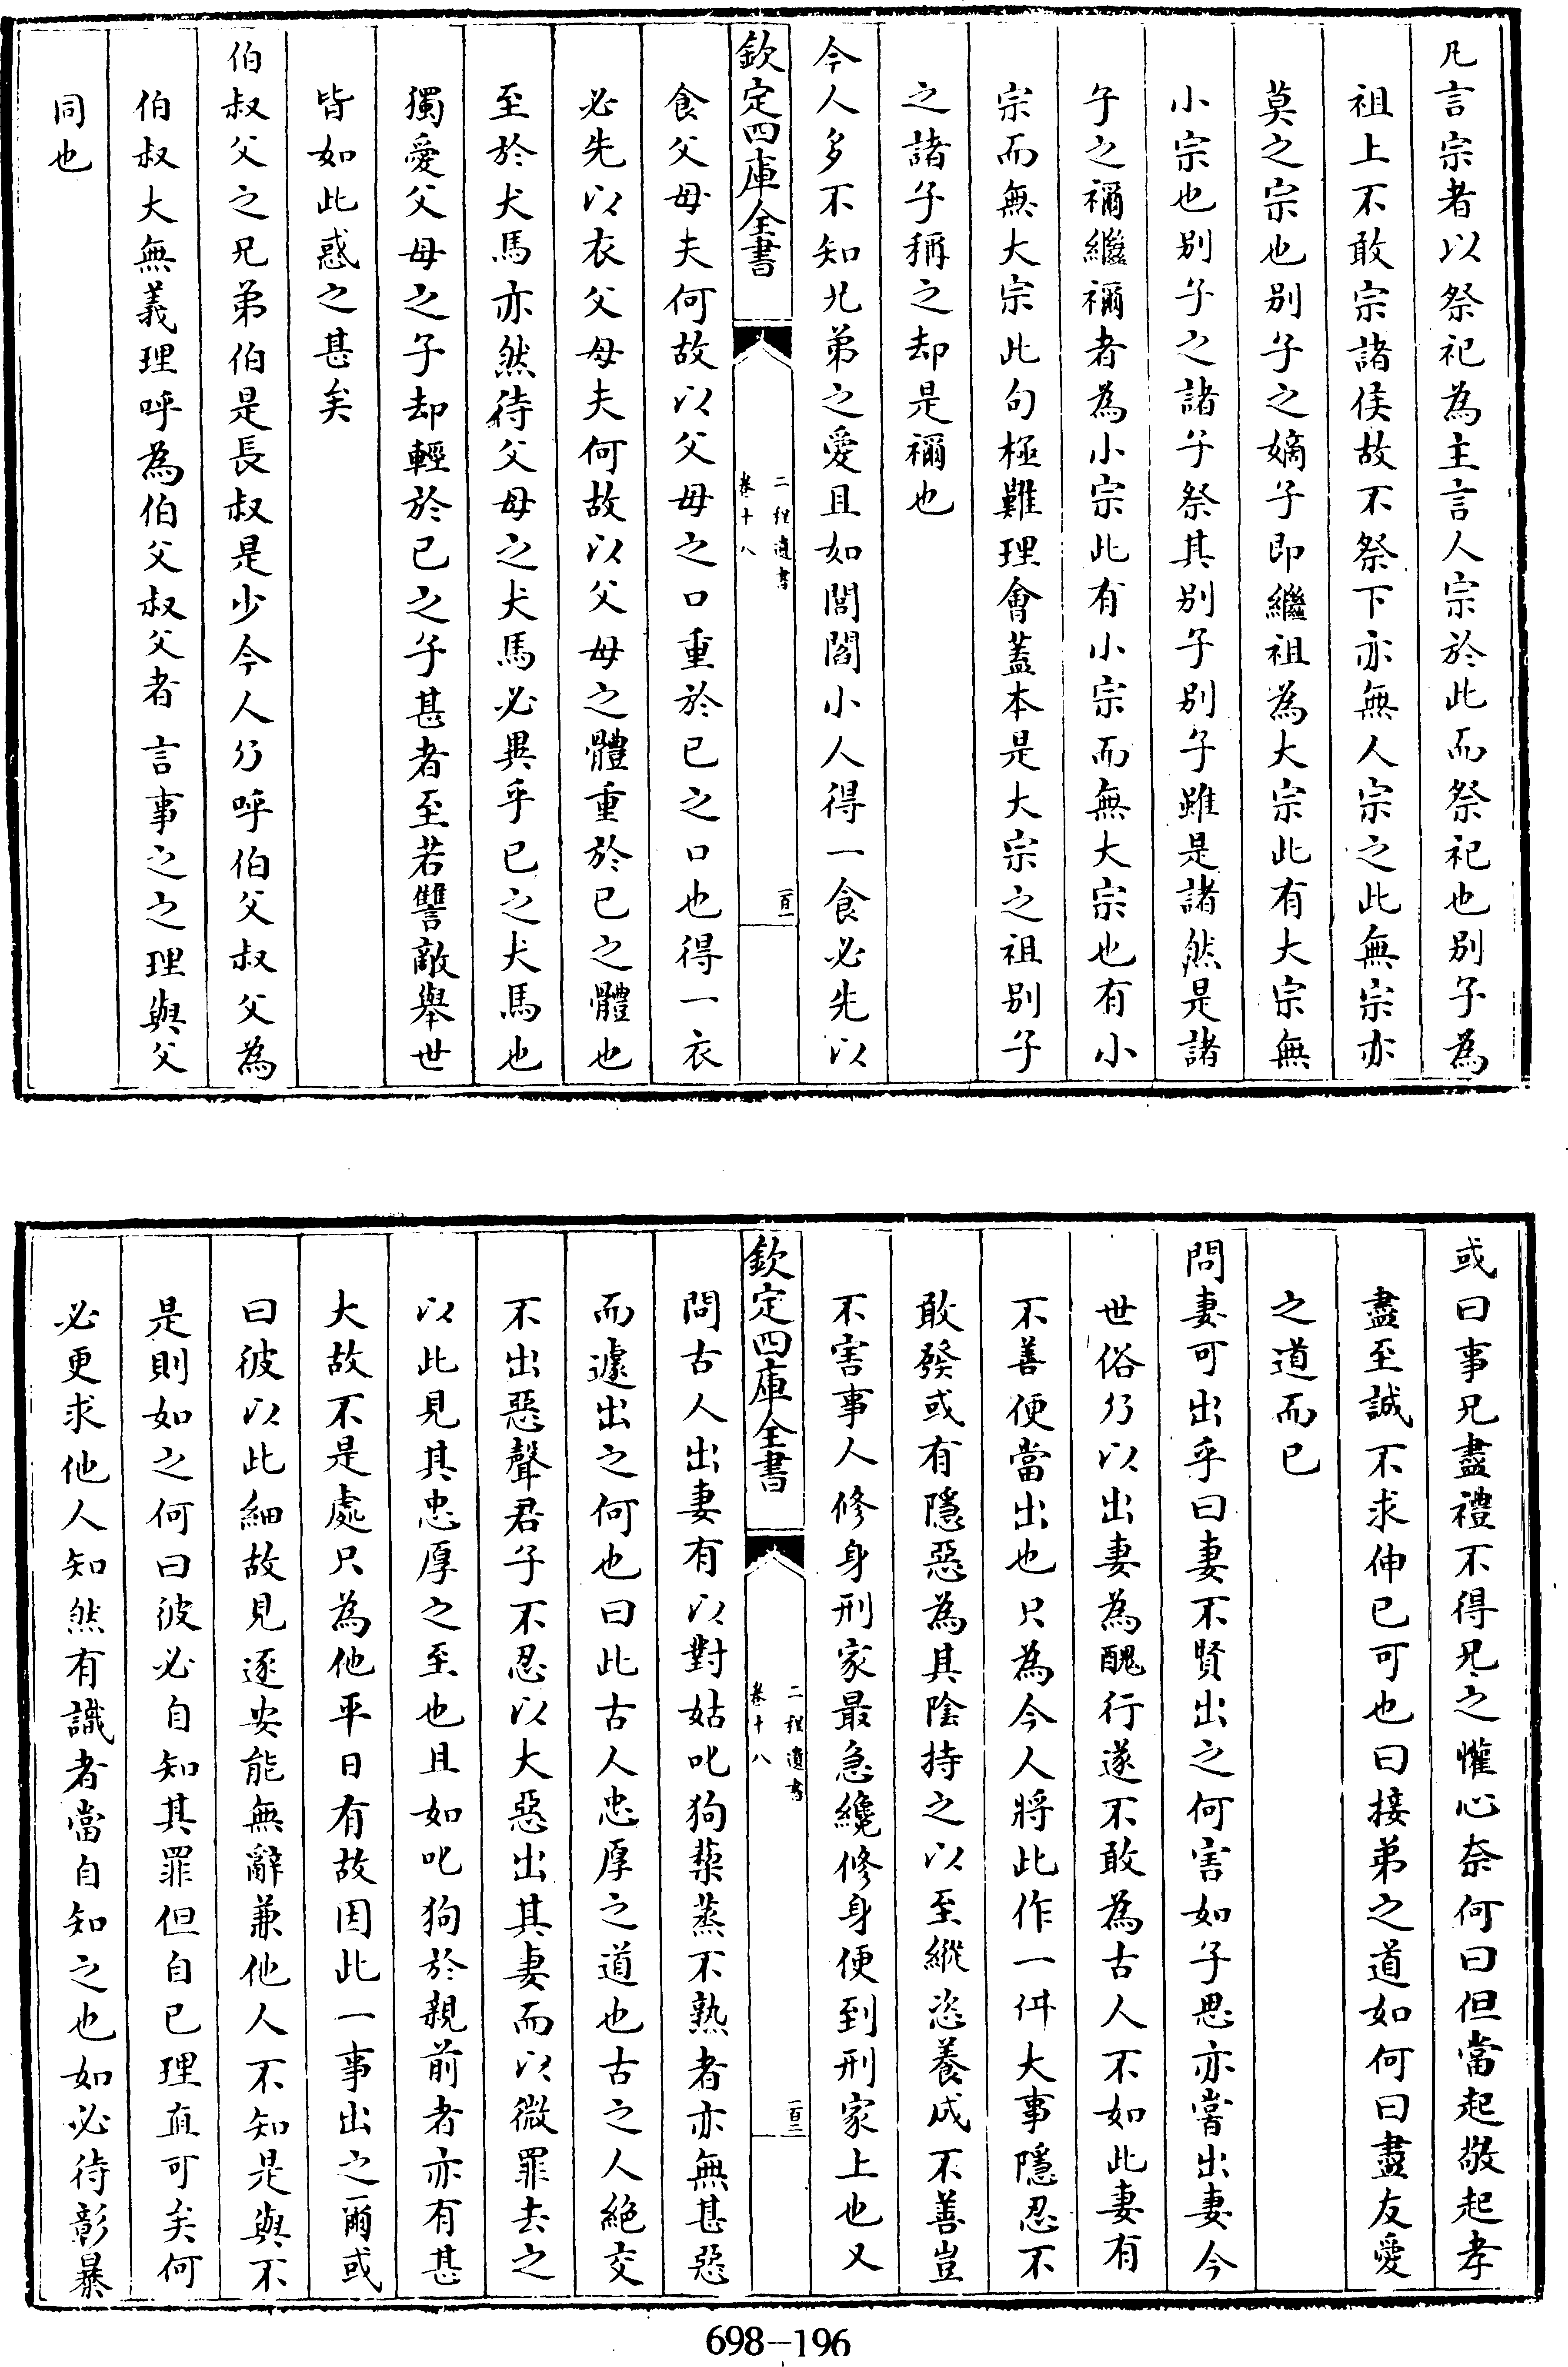 凡言宗者以祭祀為主言人宗於此而祭祀也别子為
祖上不敢宗諸侯故不祭下亦無人宗之此無宗亦
莫之宗也别子之嫡子即繼祖為大宗此有大宗無
小宗也别子之諸子祭其别子别子雖是諸然是諸
子之禰繼禰者為小宗此有小宗而無大宗也有小
宗而無大宗此句極難理會蓋本是大宗之祖别子
之諸子稱之却是禰也
今人多不知兄弟之愛且如閭閻小人得一食必先以
欽定四庫全書
二程遺書
卷十八
一百一
食父母夫何故以父母之口重於己之口也得一衣
必先以衣父母夫何故以父母之體重於己之體也
至於犬馬亦然待父母之犬馬必異乎己之犬馬也
獨愛父母之子却輕於己之子甚者至若讐敵舉世
皆如此惑之甚矣
伯叔父之兄弟伯是長叔是少今人乃呼伯父叔父為
伯叔大無義理呼為伯父叔父者言事之之理與父
同也
或曰事兄盡禮不得兄之懽心奈何曰但當起敬起孝
盡至誠不求伸己可也曰接弟之道如何曰盡友愛
之道而已
問妻可出乎曰妻不賢出之何害如子思亦嘗出妻今
世俗乃以出妻為醜行遂不敢為古人不如此妻有
不善便當出也只為今人將此作一件大事隱忍不
敢發或有隱惡為其陰持之以至縱恣養成不善豈
不害事人修身刑家最急纔修身便到刑家上也又
欽定四庫全書
二程遺書
卷十八
一百二
問古人出妻有以對姑叱狗蔾蒸不熟者亦無甚惡
而遽出之何也曰此古人忠厚之道也古之人絶交
不出惡聲君子不忍以大惡出其妻而以微罪去之
以此見其忠厚之至也且如叱狗於親前者亦有甚
大故不是處只為他平日有故因此一事出之爾或
曰彼以此細故見逐安能無辭兼他人不知是與不
是則如之何曰彼必自知其罪但自己理直可矣何
必更求他人知然有識者當自知之也如必待彰暴
698-196